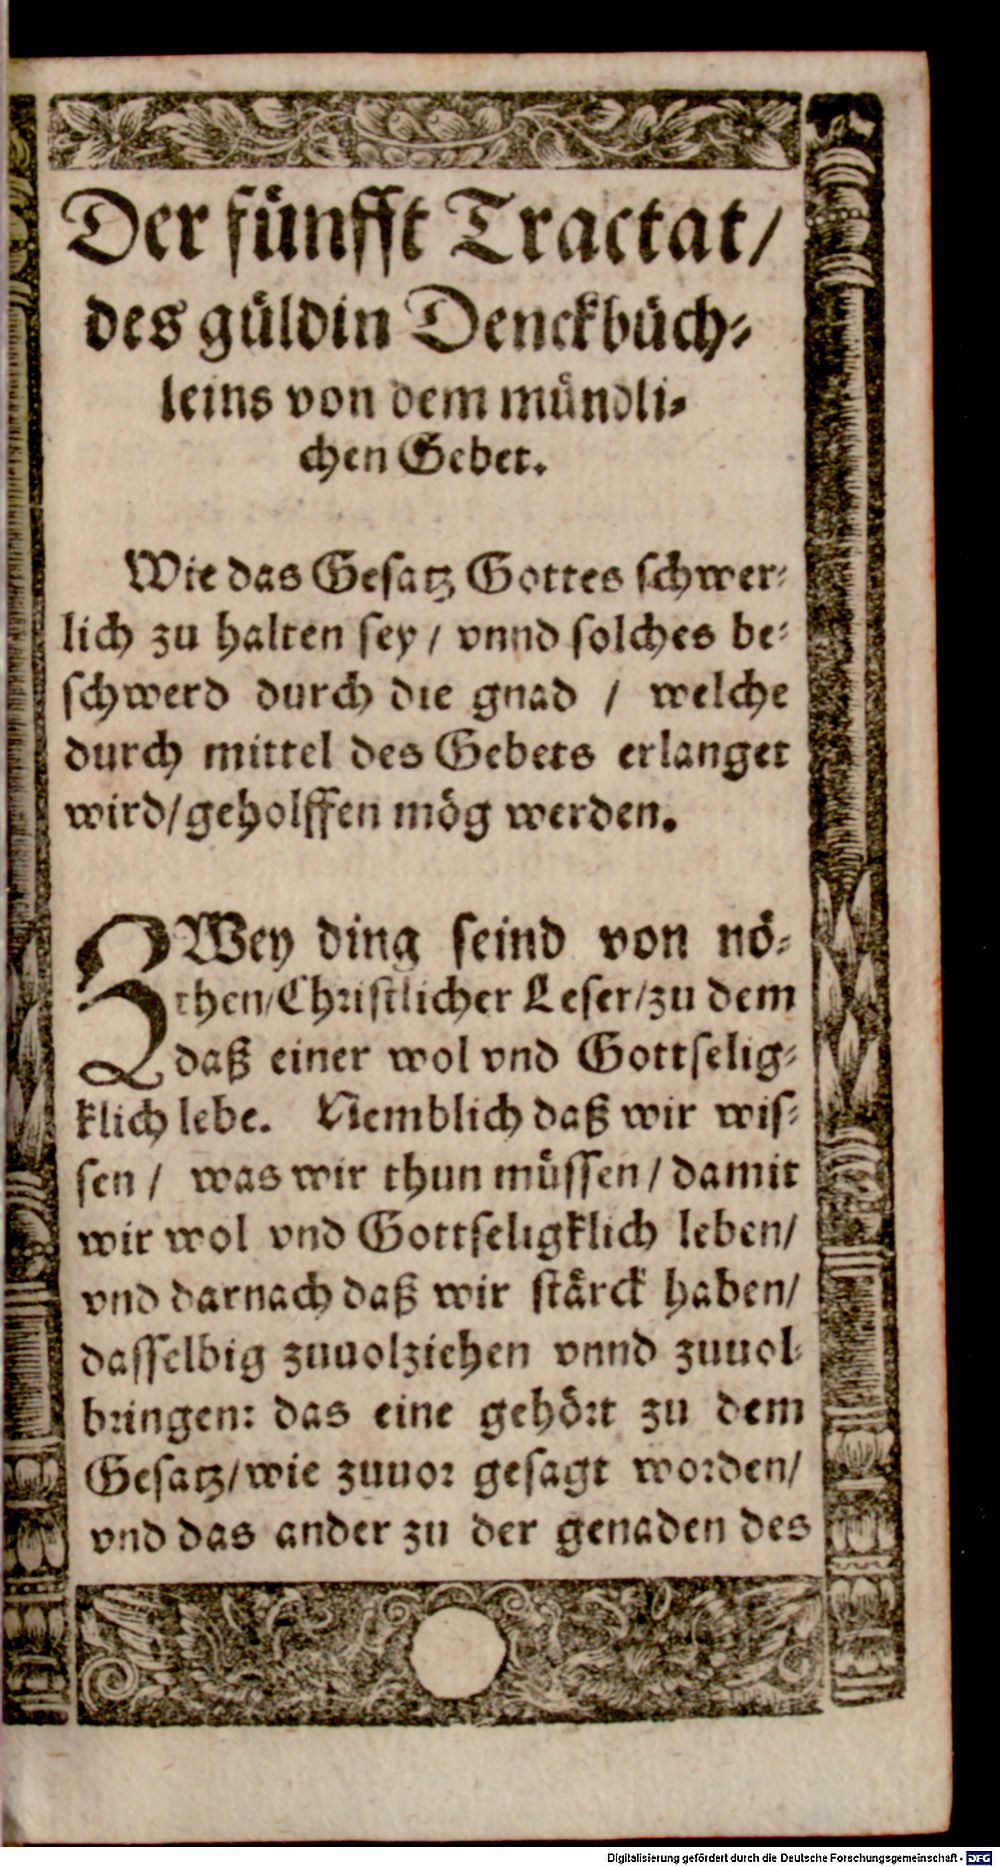 Der fünfft Tractat/
des güldin Denckbüch-
leins von dem mündli-
chen Gebet.
Wie das Gesatz Gottes schwer-
lich zu halten sey / vnnd solches be-
schwerd durch die gnad / welche
durch mittel des Gebets erlanget
wird/geholffen mög werden.
ZWey ding seind von nö-
then/Christlicher Leser/zu dem
daß einer wol vnd Gottselig-
klich lebe. Nemblich daß wir wis-
sen / was wir thun müssen / damit
wir wol vnd Gottseligklich leben/
vnd darnach daß wir stärck haben/
dasselbig zuuolziehen vnnd zuuol-
bringen: das eine gehört zu dem
Gesatz/wie zuuor gesagt worden/
vnd das ander zu der genaden des
Digitalisierung gefördert durch die Deutsche Forschungsgemeinschaft - DFG